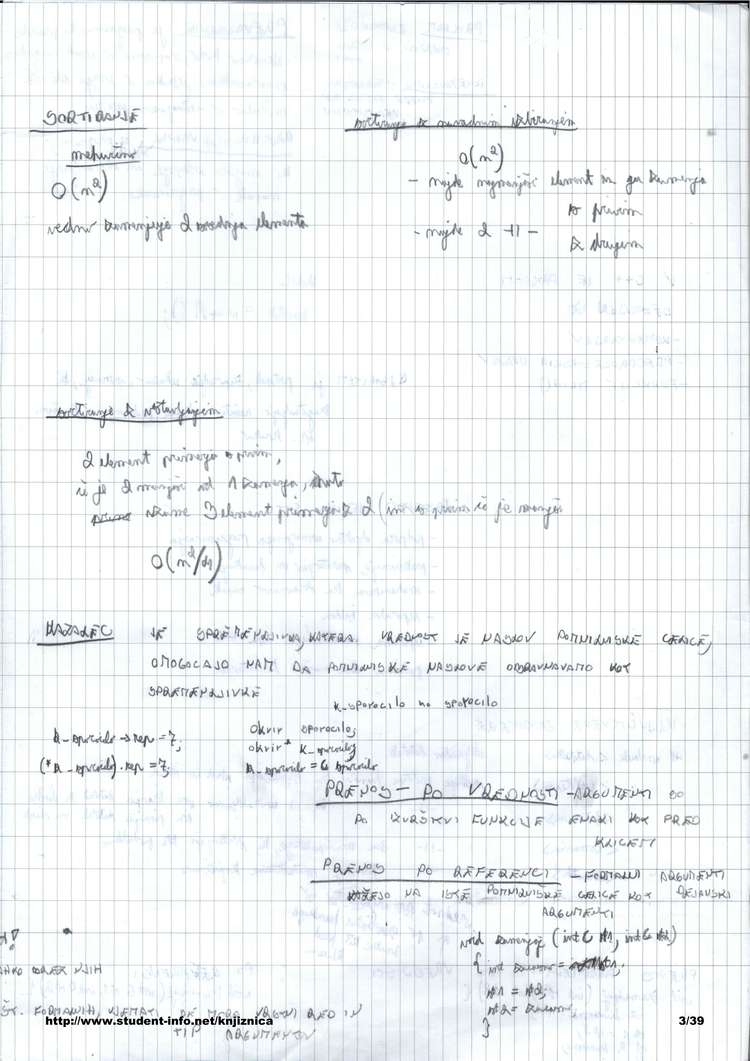 SORTIRANJE
mehurčno
O(n²)
vedno zamenjuje 2 sosednja elementa
sortiranje z navadnim izbiranjem
O(n²)
- najde najmanjši element in ga zamenja
s prvim
- najde 2 -||-
z drugim
sortiranje z vstavljanjem
2 element primerja s prvim,
če je 2 manjši od 1 zamenja,
vzame 3 element primerja z 2 (in s prvim če je manjši
O(n²/4)
KAZALEC JE SPREMENLJIVKA, KATERA VREDNOST JE NASLOV POMNILNIŠKE CELICE,
OMOGOČAJO NAM DA POMNILNIŠKE NASLOVE OBRAVNAVAMO KOT
SPREMENLJIVKE
k_sporocilo na sporocilo
k_sporocilo -> rep = 7;
(*k_sporocilo).rep = 7;
okvir sporocilo;
okvir* k_sporocilo;
k_sporocilo = & sporocilo
PRENOS - PO VREDNOSTI - ARGUMENTI SO
PO IZVRŠITVI FUNKCIJE ENAKI KOT PRED
KLICEM
PRENOS PO REFERENCI - FORMALNI ARGUMENTI
KAŽEJO NA ISTE POMNILNIŠKE CELICE KOT DEJANSKI
ARGUMENTI
void zamenjaj (int& A1, int& A2)
{ int zacasno = A1;
A1 = A2;
A2 = zacasno;
}
ŠT. FORMALNIH, UJEMATI SE MORA VRSTNI RED IN
TIP ARGUMENTOV
http://www.student-info.net/knjiznica
3/39